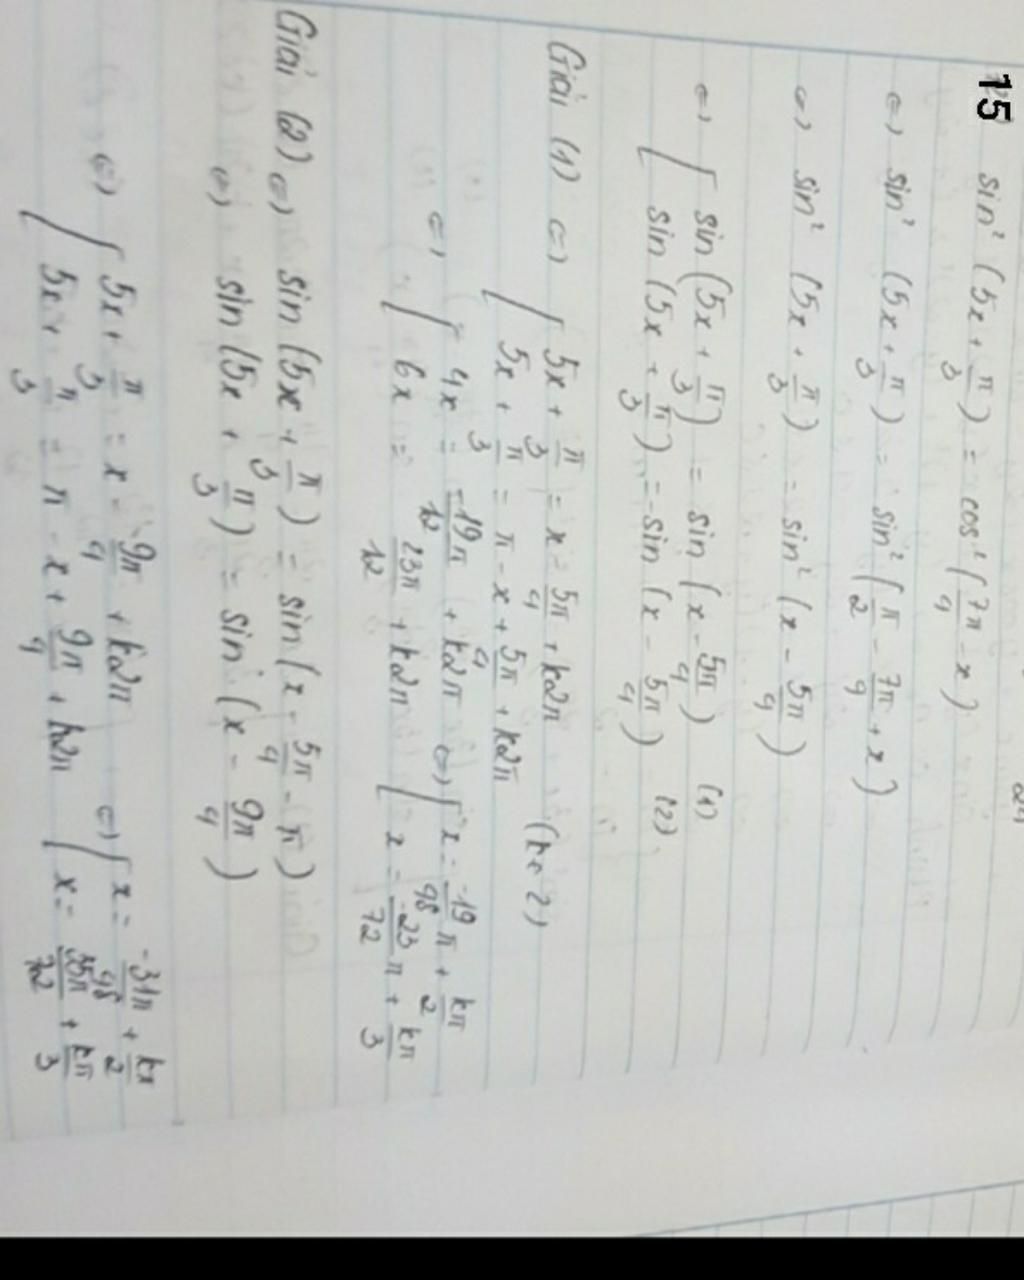 15 sin² (5x + π/3) = cos² (7π/4 - x)
⇔ sin² (5x + π/3) = sin² (π/2 - 7π/4 + x)
⇔ sin² (5x + π/3) = sin² (x - 5π/4)
⇔ [ sin (5x + π/3) = sin (x - 5π/4) (1)
sin (5x + π/3) = -sin (x - 5π/4) (2)
Giải (1) ⇔ [ 5x + π/3 = x - 5π/4 + k2π
5x + π/3 = π - x + 5π/4 + k2π (k ∈ Z)
⇔ [ 4x = -19π/12 + k2π ⇔ [ x = -19/48 π + kπ/2
6x = 23π/12 + k2π x = -23/72 π + kπ/3
Giải (2) ⇔ sin (5x + π/3) = sin (x - 5π/4 - π)
⇔ sin (5x + π/3) = sin (x - 9π/4)
⇔ [ 5x + π/3 = x - 9π/4 + k2π ⇔ [ x = -31π/48 + kπ/2
5x + π/3 = π - x + 9π/4 + k2π x = 35π/72 + kπ/3